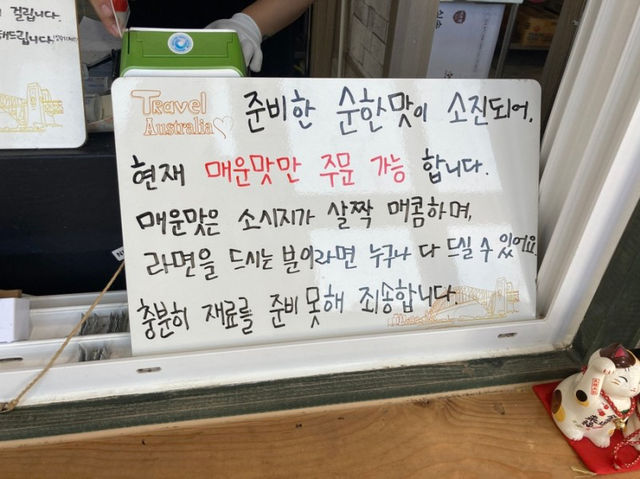 걸립니다.
Travel
Australia
준비한 순한맛이 소진되어,
현재 매운맛만 주문 가능 합니다.
매운맛은 소시지가 살짝 매콤하며,
라면을 드시는 분이라면 누구나 다 드실 수 있어요.
충분히 재료를 준비 못해 죄송합니다.